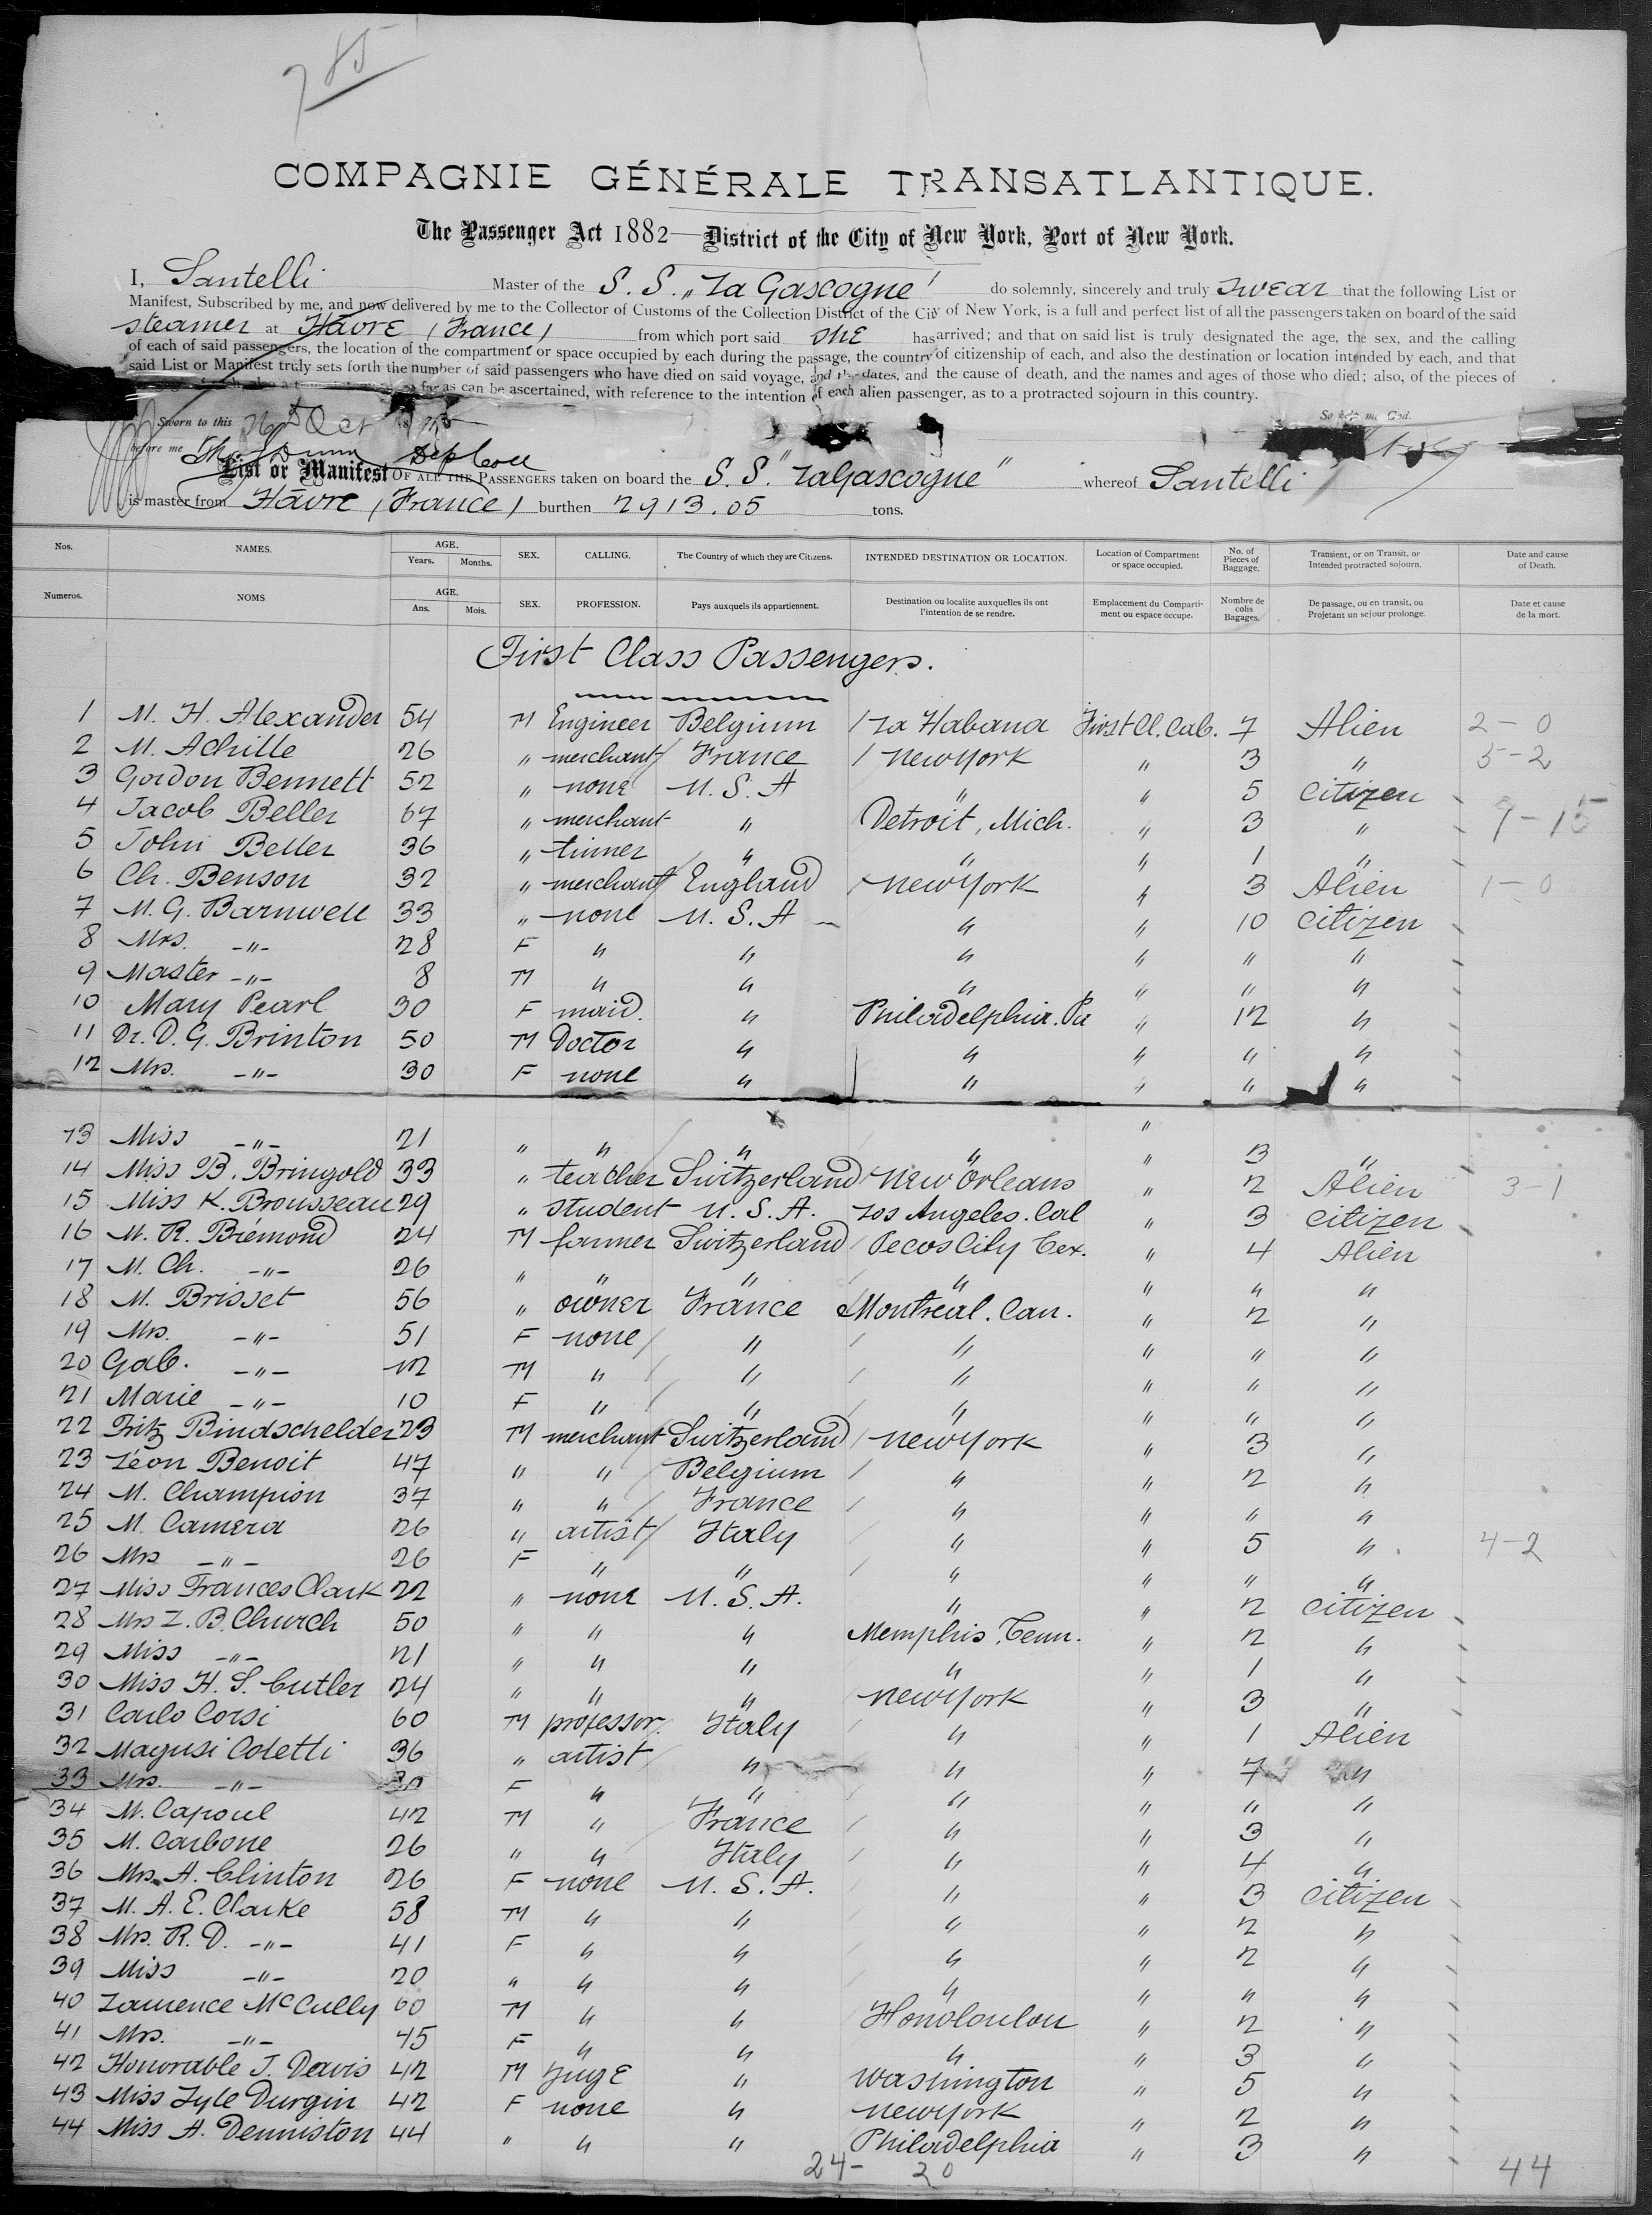 785
COMPAGNIE GÉNÉRALE TRANSATLANTIQUE.
The Passenger Act 1882—District of the City of New York, Port of New York.
I, Santelli Master of the S. S. „La Gascogne" do solemnly, sincerely and truly swear that the following List or
Manifest, Subscribed by me, and now delivered by me to the Collector of Customs of the Collection District of the City of New York, is a full and perfect list of all the passengers taken on board of the said
steamer at Hâvre (France) from which port said she has arrived; and that on said list is truly designated the age, the sex, and the calling
of each of said passengers, the location of the compartment or space occupied by each during the passage, the country of citizenship of each, and also the destination or location intended by each, and that
said List or Manifest truly sets forth the number of said passengers who have died on said voyage, and the dates, and the cause of death, and the names and ages of those who died; also, of the pieces of
far as can be ascertained, with reference to the intention of each alien passenger, as to a protracted sojourn in this country.
Sworn to this Oct So help me God.
before me Dunn Dep Coll
List or Manifest OF ALL THE PASSENGERS taken on board the S. S. "La Gascogne" whereof Santelli
is master from Hâvre (France) burthen 2913.05 tons.
Nos. NAMES. AGE. Years. Months. SEX. CALLING. The Country of which they are Citizens. INTENDED DESTINATION OR LOCATION. Location of Compartment or space occupied. No. of Pieces of Baggage. Transient, or on Transit, or Intended protracted sojourn. Date and cause of Death.
Numeros. NOMS AGE. Ans. Mois. SEX. PROFESSION. Pays auxquels ils appartiennent. Destination ou localite auxquelles ils ont l'intention de se rendre. Emplacement du Compartiment ou espace occupe. Nombre de colis Bagages. De passage, ou en transit, ou Projetant un sejour prolonge. Date et cause de la mort.
First Class Passengers.
1 M. H. Alexander 54 M Engineer Belgium La Habana First Cl. Cab. 7 Alien 2-0
2 M. Achille 26 " merchant France New York " 3 " 5-2
3 Gordon Bennett 52 " none U. S. A " " 5 citizen
4 Jacob Beller 67 " merchant " Detroit, Mich. " 3 " 9-15
5 John Beller 36 " tinner " " " 1 "
6 Ch. Benson 32 " merchant England New York " 3 Alien 1-0
7 M. G. Barnwell 33 " none U. S. A " " 10 citizen
8 Mrs. -"- 28 F " " " " " "
9 Master -"- 8 M " " " " " "
10 Mary Pearl 30 F maid. " Philadelphia. Pa " 12 "
11 Dr. D. G. Brinton 50 M Doctor " " " " "
12 Mrs. -"- 30 F none " " " " "
13 Miss -"- 21 " " " " " 3 "
14 Miss B. Bringold 33 " teacher Switzerland New Orleans " 2 Alien 3-1
15 Miss K. Brousseau 29 " student U. S. A. Los Angeles. Cal " 3 citizen
16 M. R. Brémond 24 M farmer Switzerland Pecos City Tex. " 4 Alien
17 M. Ch. -"- 26 " " " " " " "
18 M. Brisset 56 " owner France Montreal. Can. " 2 "
19 Mrs. -"- 51 F none " " " " "
20 Gab. -"- 12 M " " " " " "
21 Marie -"- 10 F " " " " " "
22 Fritz Bindschelder 23 M merchant Switzerland New York " 3 "
23 Léon Benoit 47 " " Belgium " " 2 "
24 M. Champion 37 " " France " " " "
25 M. Camera 26 " artist Italy " " 5 " 4-2
26 Mrs -"- 26 F " " " " " "
27 Miss Frances Clark 22 " none U. S. A. " " 2 citizen
28 Mrs L. B. Church 50 " " " Memphis, Tenn. " 2 "
29 Miss -"- 21 " " " " " 1 "
30 Miss H. S. Cutler 24 " " " New York " 3 "
31 Carlo Corsi 60 M professor. Italy " " 1 Alien
32 Magusi Coletti 36 " artist " " " 7 "
33 Mrs. -"- 30 F " " " " " "
34 M. Capoul 42 M " France " " 3 "
35 M. Carbone 26 " " Italy " " 4 "
36 Mrs. A. Clinton 26 F none U. S. A. " " 3 citizen
37 M. A. E. Clarke 58 M " " " " 2 "
38 Mrs. R. D. -"- 41 F " " " " 2 "
39 Miss -"- 20 " " " " " " "
40 Lawrence McCully 60 M " " Honoloulou " 2 "
41 Mrs. -"- 45 F " " " " 3 "
42 Honorable J. Davis 42 M juge " Washington " 5 "
43 Miss Lyle Durgin 42 F none " New York " 2 "
44 Miss A. Denniston 44 " " " Philadelphia " 3 "
24- 20 44